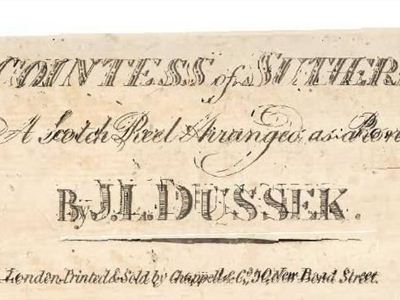 COUNTESS of SUTHER
A Scotch Reel Arranged as a Ron
By J. L. DUSSEK.
London Printed & Sold by Chappell & Co. 50, New Bond Street.